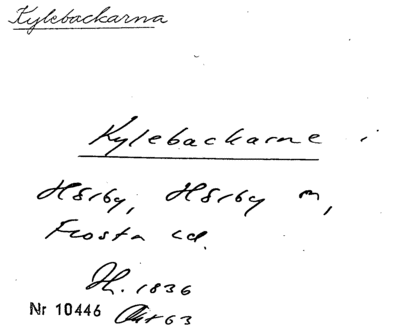 Kylebackarna
Kylebackarne i
Hörby, Hörby sn,
Frosta hd.
H. 1836
Nr 10446 Akt 63